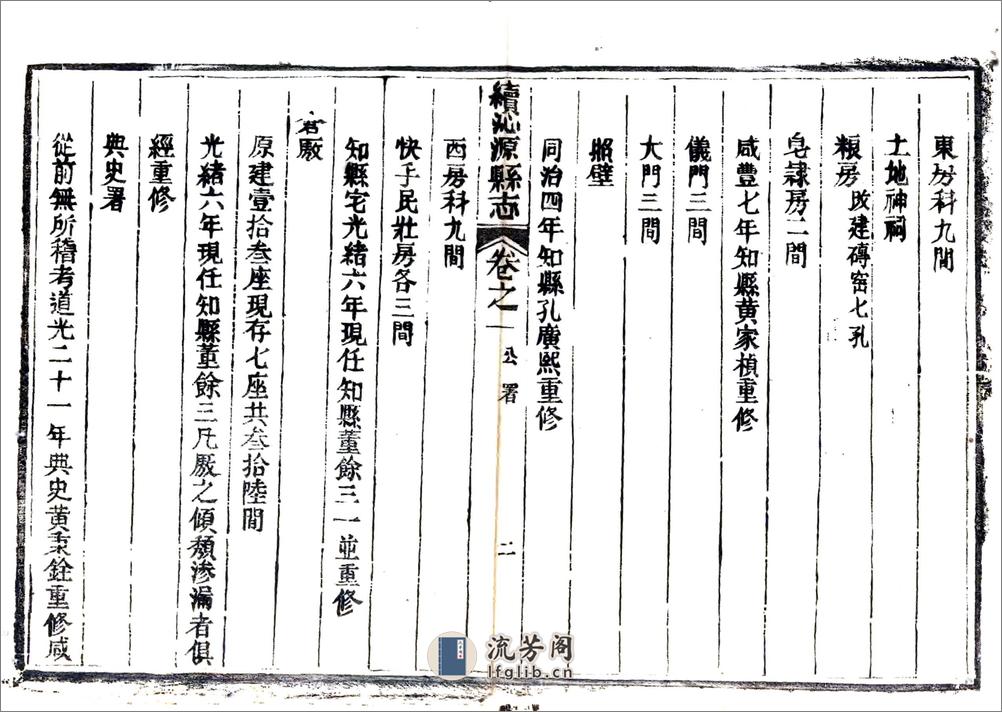 東房科九間
土地神祠
糧房改建磚窰七孔
皂隸房二間
咸豐七年知縣黃家楨重修
儀門三間
大門三間
照壁
同治四年知縣孔廣熙重修
續沁源縣志 卷之一 公署 二
西房科九間
快手民壯房各三間
知縣宅光緒六年現任知縣董餘三一並重修
倉厫
原建壹拾叁座現存七座共叁拾陸間
光緒六年現任知縣董餘三凡厫之傾頹滲漏者俱
經重修
典史署
從前無所稽考道光二十一年典史黃秉銓重修咸
流芳阁
lfglib.cn